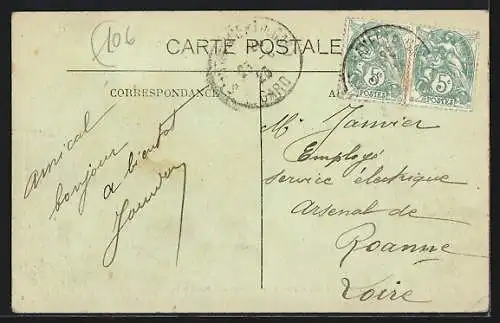 106
CARTE POSTALE
CORRESPONDANCE
GARD
5c
POSTES
5c
POSTES
Amical
bonjour
a bientot
Mr Janvier
Employé
Service électrique
Arsenal de
Roanne
Loire